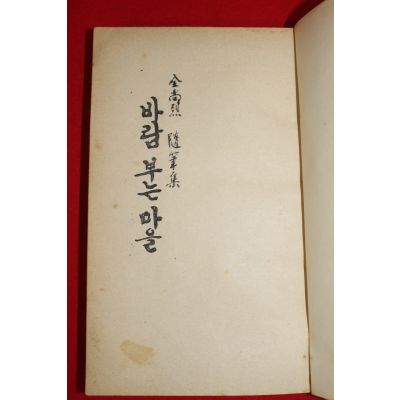 全尙烈 隨筆集
바람 부는 마을